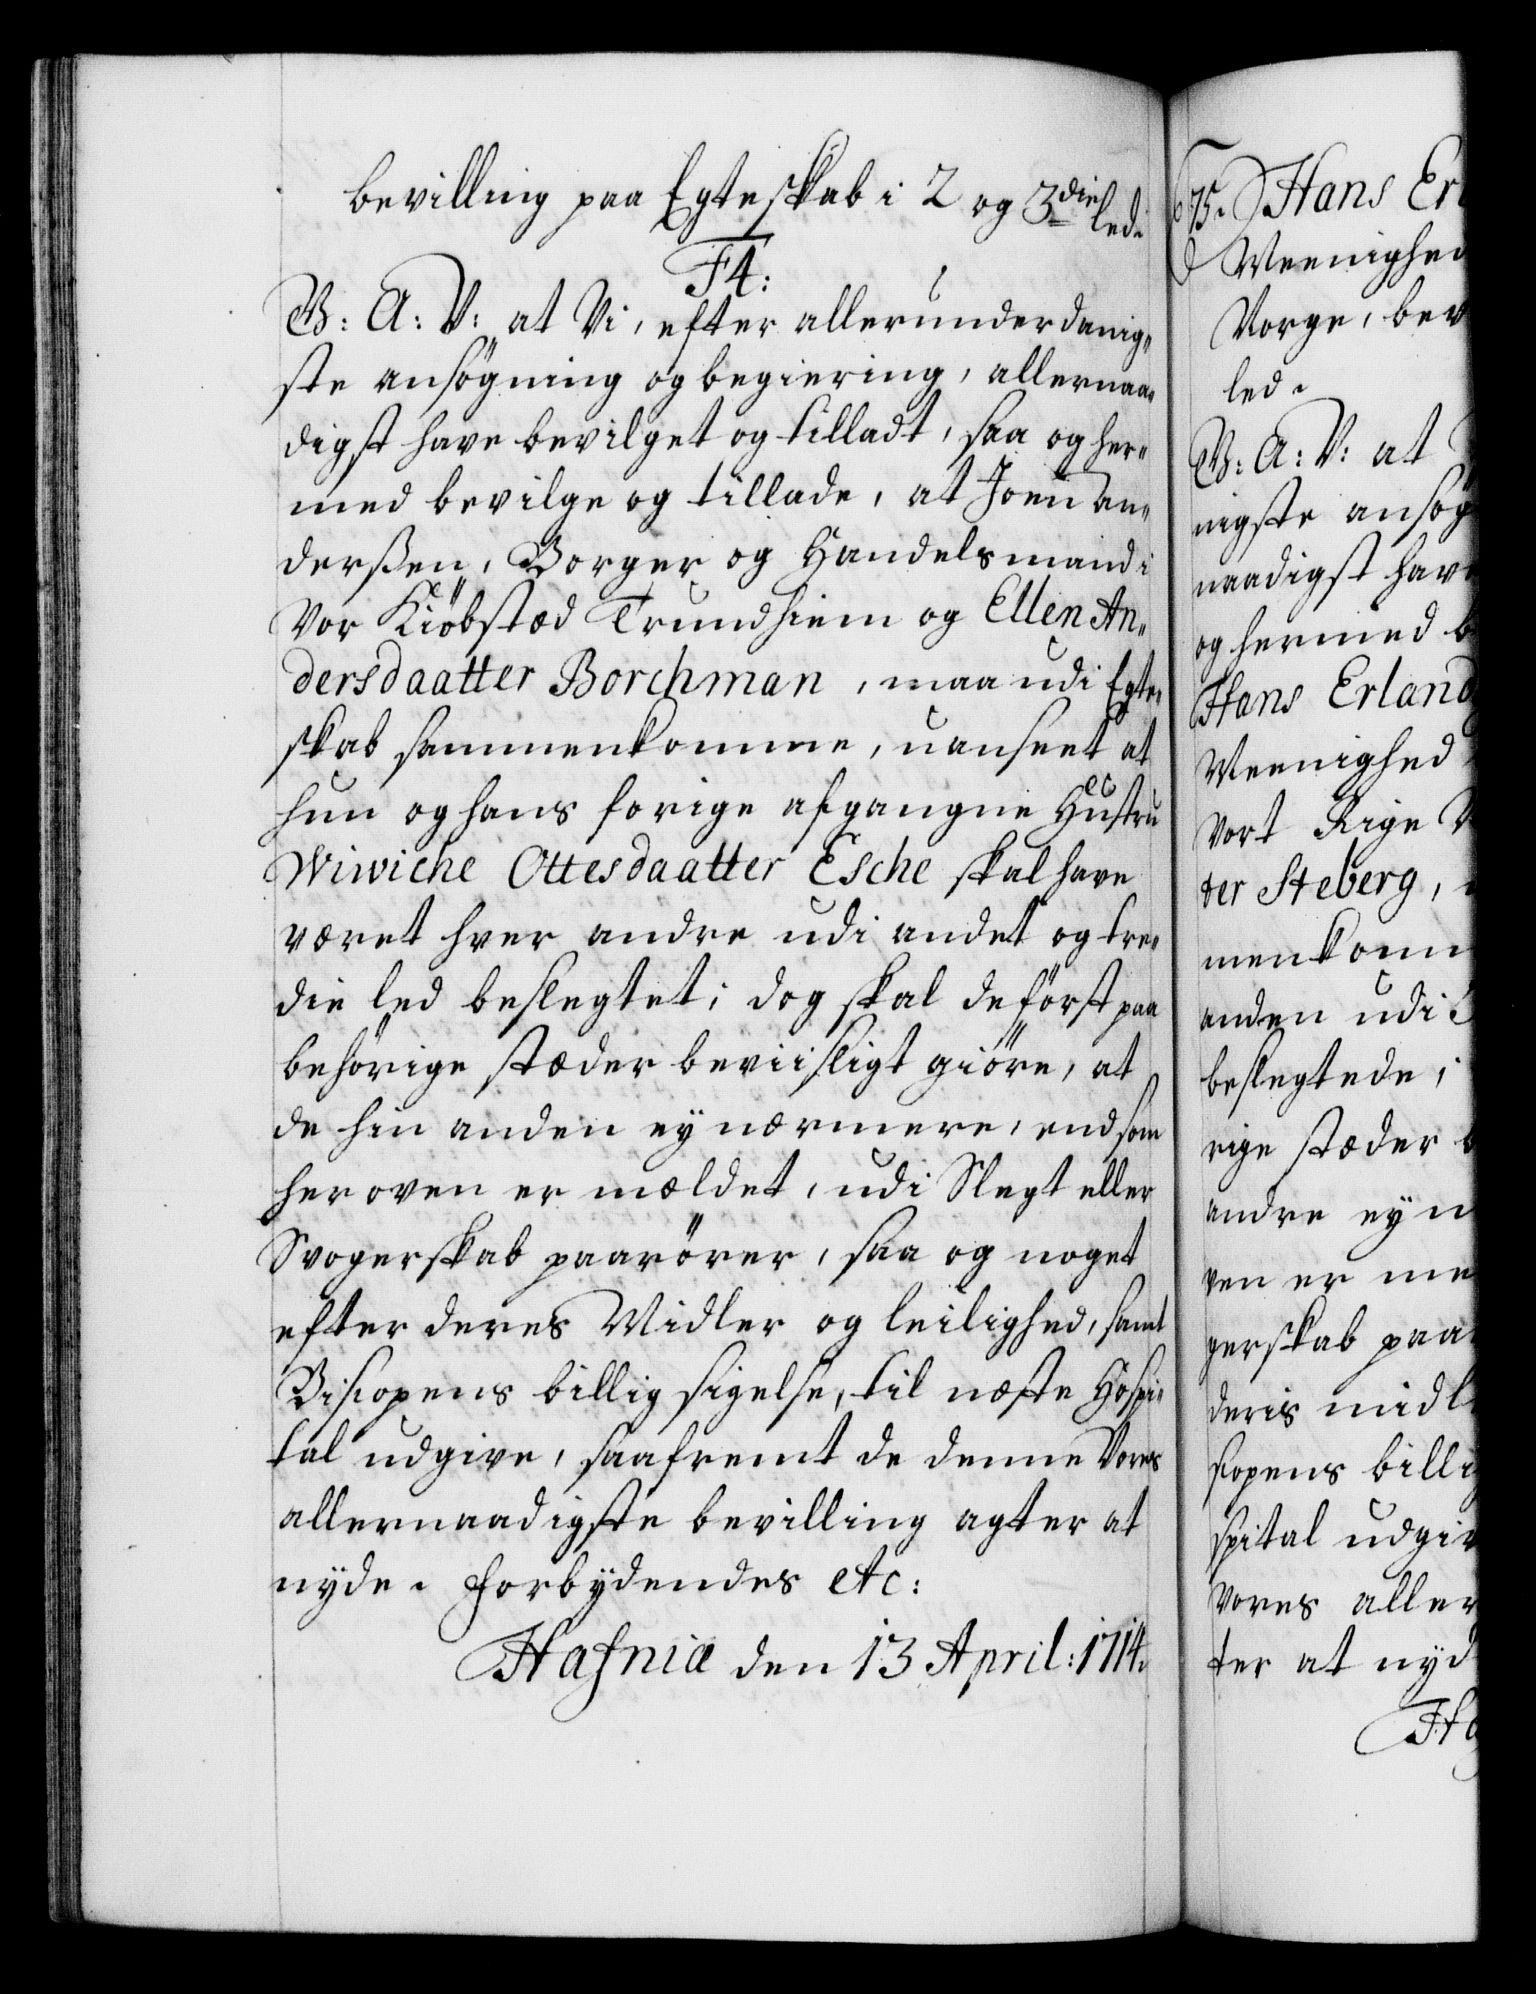 bevilling paa Egteskab i 2 og 3die led.
F4:
G: A: V: at Vi, efter allerunderdanig-
ste ansögning og begiering, allernaa-
digst have bevilget og tilladt, saa og her-
med bevilge og tillade, at Joen An-
derßen, Borger og Handelsmand i
Vor Kiöbstæd Trundhiem og Ellen An-
dersdaatter Borchman, maa udi Egte-
skab sammenkomme, uanseet at
hun og hans forige afgangne Hustru
Wiwiche Ottesdaatter Esche skal have
været hver andre udi andet og tre-
die led beslegtet; dog skal de först paa
behörige stæder beviisligt giöre, at
de hin anden ey nærmere, end som
her oven er mældet, udi Slegt eller
Svogerskab paarörer, saa og noget
efter deres Midler og leilighed, samt
Biscopens billig sigelse, til næste Hospi-
tal udgive, saafremt de denne Vores
allernaadigste bevilling agter at
nyde. Forbydendes etc:
Hafniæ den 13 April: 1714.
75. Hans Erl
Meenighed
Norge, bev
led.
G: A: V: at
nigste ansög
naadigst have
og hermed be
Hans Erland
Meenighed
Vort Rige N
ter Steberg,
menkomm
anden udi
beslegtede;
rige stæder b
andre ey n
ven er me
gerskab paa
deris midl
scopens billi
spital udgiv
Vores aller
ter at nyd
Ha